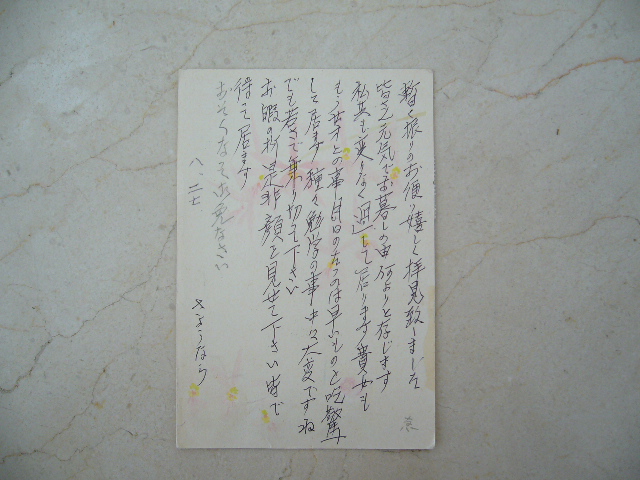 暫く振りのお便り嬉しく拝見致しました
皆々元気でお暮しの由何よりと存じます
私共も変りなく過して居ります貴女も
もう
との事月日のたつのは早いものと吃驚
して居ます 種々勉学の事 大変ですね
でも若さで乗り切って下さい
お暇の折是非顔を見せて下さい 皆で
待って居ます
おそくなって御免なさい
さようなら
八、二七